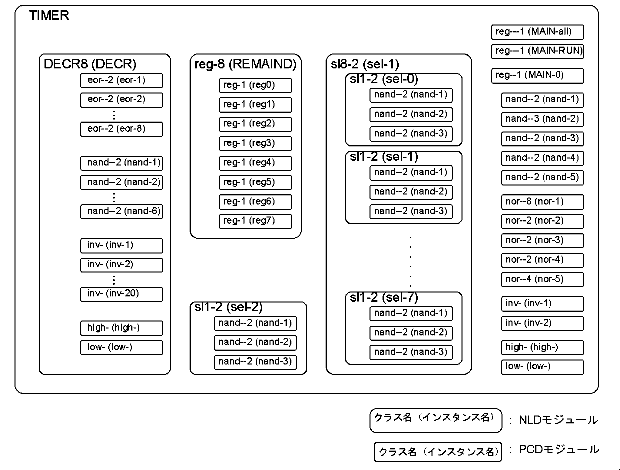 TIMER
DECR8 (DECR)
eor--2 (eor-1)
eor--2 (eor-2)
eor--2 (eor-8)
nand--2 (nand-1)
nand--2 (nand-2)
nand--2 (nand-6)
inv- (inv-1)
inv- (inv-2)
inv- (inv-20)
high- (high-)
low- (low-)
reg-8 (REMAIND)
reg-1 (reg0)
reg-1 (reg1)
reg-1 (reg2)
reg-1 (reg3)
reg-1 (reg4)
reg-1 (reg5)
reg-1 (reg6)
reg-1 (reg7)
sl1-2 (sel-2)
nand--2 (nand-1)
nand--2 (nand-2)
nand--2 (nand-3)
sl8-2 (sel-1)
sl1-2 (sel-0)
nand--2 (nand-1)
nand--2 (nand-2)
nand--2 (nand-3)
sl1-2 (sel-1)
nand--2 (nand-1)
nand--2 (nand-2)
nand--2 (nand-3)
sl1-2 (sel-7)
nand--2 (nand-1)
nand--2 (nand-2)
nand--2 (nand-3)
reg---1 (MAIN-all)
reg---1 (MAIN-RUN)
reg--1 (MAIN-0)
nand--2 (nand-1)
nand--3 (nand-2)
nand--2 (nand-3)
nand--2 (nand-4)
nand--2 (nand-5)
nor--8 (nor-1)
nor--2 (nor-2)
nor--2 (nor-3)
nor--2 (nor-4)
nor--4 (nor-5)
inv- (inv-1)
inv- (inv-2)
high- (high-)
low- (low-)
クラス名（インスタンス名） : NLDモジュール
クラス名（インスタンス名） : PCDモジュール